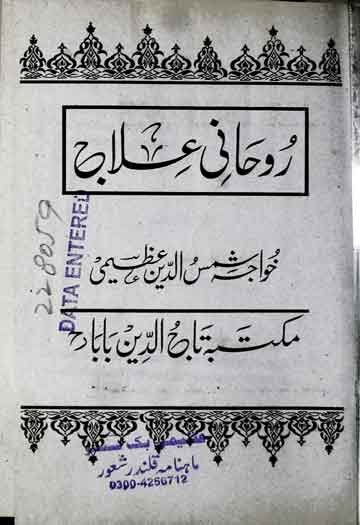 رُوحَانی عِلاج
خواجہ شمس الدین عظیمی
مکتبہ تاج الدین بابا
228059
DATA ENTERED
عظیمی بک سنٹر
ماہنامہ قلندر شعور
0300-4256712